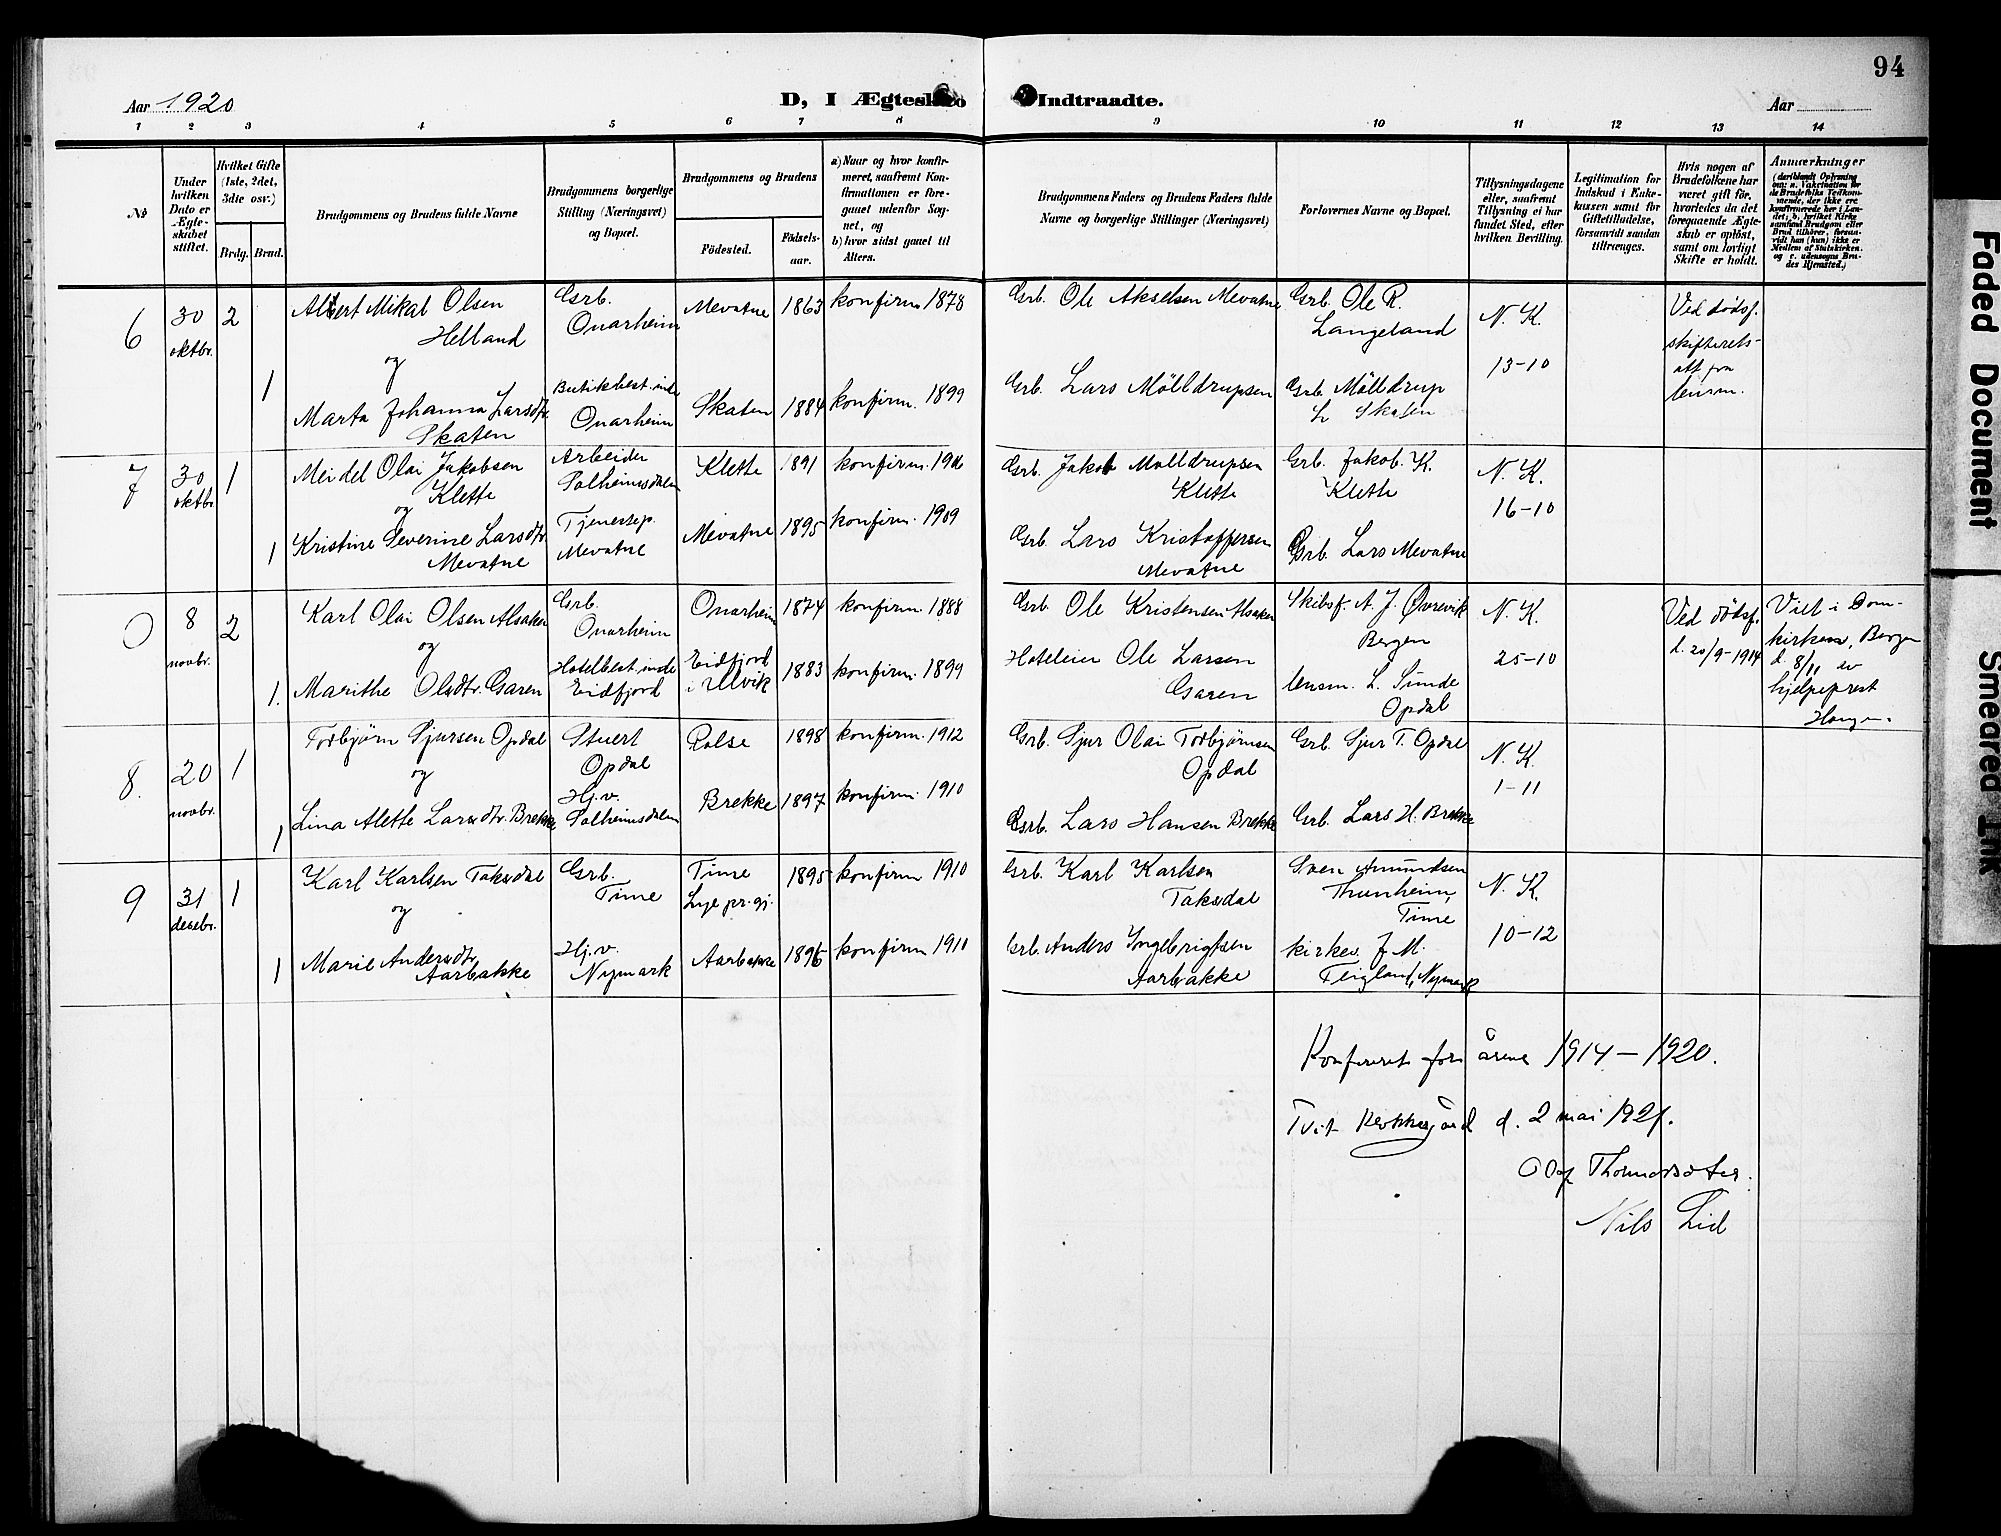 94
Aar 1920
D, I Ægteskab
Indtraadte.
Aar
1 2 3 4 5 6 7 8 9 10 11 12 13 14
No
Under hvilken Dato er Ægteskabet stiftet.
Hvilket Gifte (1ste, 2det, 3die osv.)
Brdg. Brud.
Brudgommens og Brudens fulde Navne
Brudgommens borgerlige Stilling (Næringsvei) og Bopæl.
Brudgommens og Brudens
Fødested.
Fødselsaar.
a) Naar og hvor konfirmeret, saafremt Konfirmationen er foregaaet udenfor Sognet, og
b) hvor sidst gaaet til Alters.
Brudgommens Faders og Brudens Faders fulde Navne og borgerlige Stillinger (Næringsvei)
Forlovernes Navne og Bopæl.
Tillysningsdagene eller, saafremt Tillysning ei har fundet Sted, efter hvilken Bevilling.
Legitimation for Indskud i Enkekassen samt for Giftetilladelse, forsaavidt saadan tiltrænges.
Hvis nogen af Brudefolkene har været gift før, hvorledes da det foregaaende Ægteskab er opløst, samt om lovligt Skifte er holdt.
Anmærkninger (deriblandt Oplysning om: a. Vakcination for de Brudefolks Vedkommende, der ikke ere konfirmerede her i Landet; b. hvilket Kirkesamfund Brudgom eller Brud tilhører, forsaavidt han (hun) ikke er Medlem af Statskirken, og c. udensogns Brudes Hjemsted.)
6
30 oktbr.
2
Albert Mikal Olsen
Helland
og
Grb.
Onarheim
Mevatne
1863
konfirm 1878
Grb. Ole Akselsen Mevatne
Grb. Ole R.
Langeland
N. K.
13-10
Ved dødsf.
skifterets-
att fra
lensm.
1
Marta Johanna Larsdtr
Skaten
Butikbest.inde
Onarheim
Skaten
1884
konfirm. 1899
Grb. Lars Mölldrupsen
Grb. Mölldrup
L. Skaten
7
30 oktbr.
1
Meidel Olai Jakobsen
Klette
og
Arbeider
Solheimsdalen
Klette
1891
konfirm. 1906
Grb. Jakob Molldrupsen
Klette
Grb. Jakob. K.
Klette
N. K.
16-10
1
Kristine Severine Larsdtr
Mevatne
Tjenersep.
Mevatne
Mevatne
1895
konfirm. 1909
Grb. Lars Kristoffersen
Mevatne
Grb. Lars Mevatne
0
8 novbr.
2
Karl Olai Olsen Alsaker
og
Grb.
Onarheim
Onarheim
1874
konfirm. 1888
Grb. Ole Kristensen Alsaker
Skibsf. A. J. Øvrevik
Bergen
N. K.
25-10
Ved dødsf.
d. 20/9-1914
Viet i Dom-
kirken, Bergen
d. 8/11 av
hjelpeprest
Hauge.
1.
Marithe Olsdtr. Garen
Hotelbest.inde
Eidfjord
Eidfjord
i Ulvik
1883
konfirm. 1899
Hoteleier Ole Larsen
Garen
lensm. L. Sunde
Opdal
8.
20 novbr.
1
Torbjørn Sjursen Opdal
og
Stuert
Opdal
Rolse
1898
konfirm. 1912
Grb. Sjur Olai Torbjørnsen
Opdal
Grb. Sjur T. Opdal
N. K.
1-11
1
Lina Alette Larsdtr. Brekke
Hj.v.
Solheimsdalen
Brekke
1897
konfirm. 1910
Grb. Lars Hansen Brekke
Grb. Lars H. Brekke
9
31 desebr.
1
Karl Karlsen Taksdal
og
Grb.
Time
Time
Lye pr.gj.
1895
konfirm 1910
Grb. Karl Karlsen
Taksdal
Sven Amundsen
Thunheim,
Time
N. K.
10-12
1
Marie Andersdtr
Aarbakke
Hj.v.
Nymark
Aarbakke
1896
konfirm 1910
Grb. Anders Ingebrigtsen
Aarbakke
kirkes. J. M.
Teigland, Nymark
Konfereret for årene 1914-1920.
Tveit Klokkergård d. 2 mai 1921.
Nils Lid
Faded Document
Smeared Ink